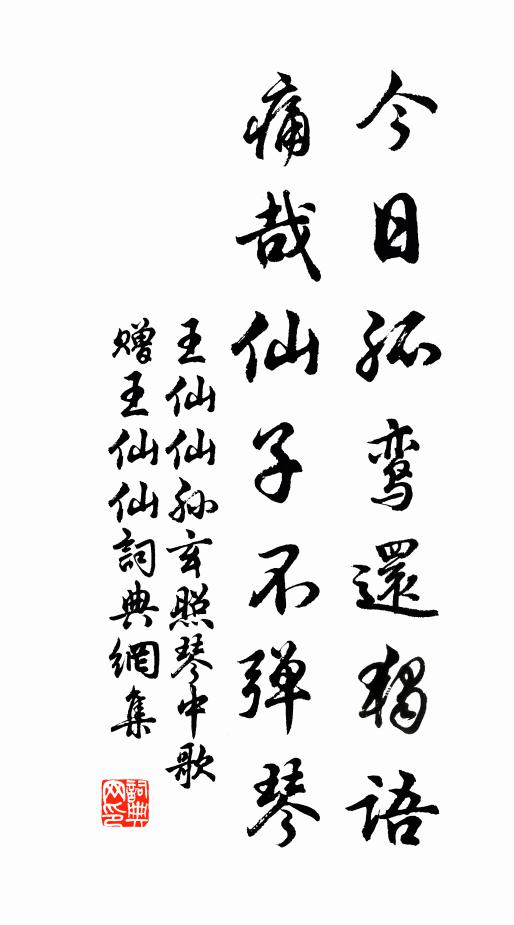 今日孤鸾還獨語
痛哉仙子不弹琴
王仙仙孙玄照琴中歌
赠王仙仙詞典網集
詞典